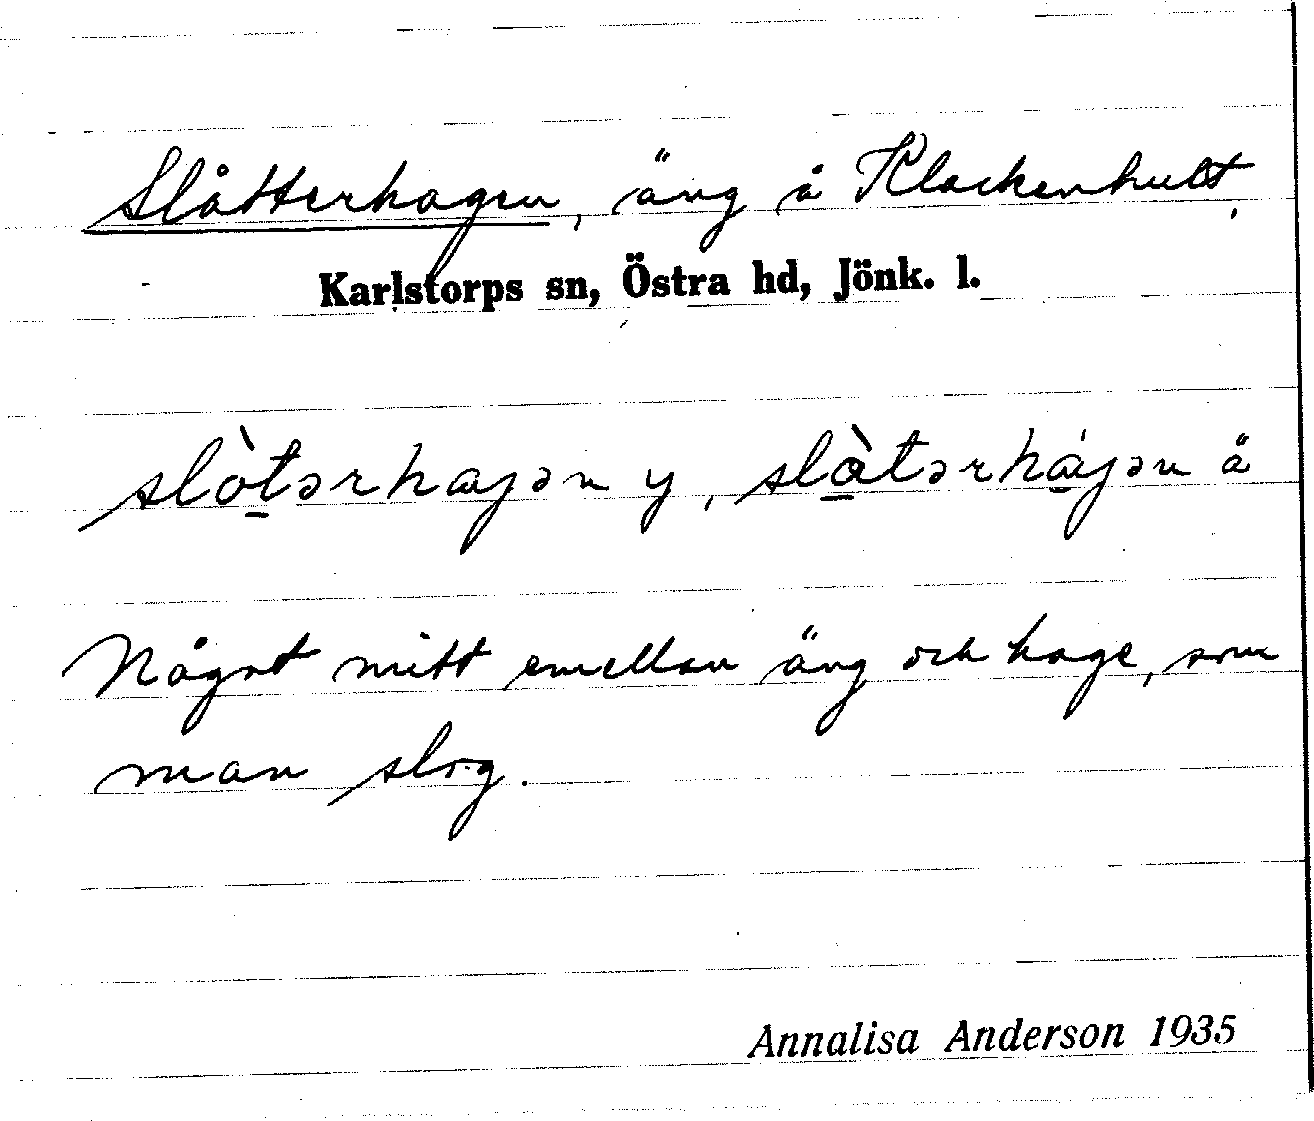 Slåtterhagen, äng å Klackenhult,
Karlstorps sn, Östra hd, Jönk. l.
slòtərhaɉən y, slàtərháɉən ä
Något mitt emellan äng och hage, som
man slog.
Annalisa Anderson 1935